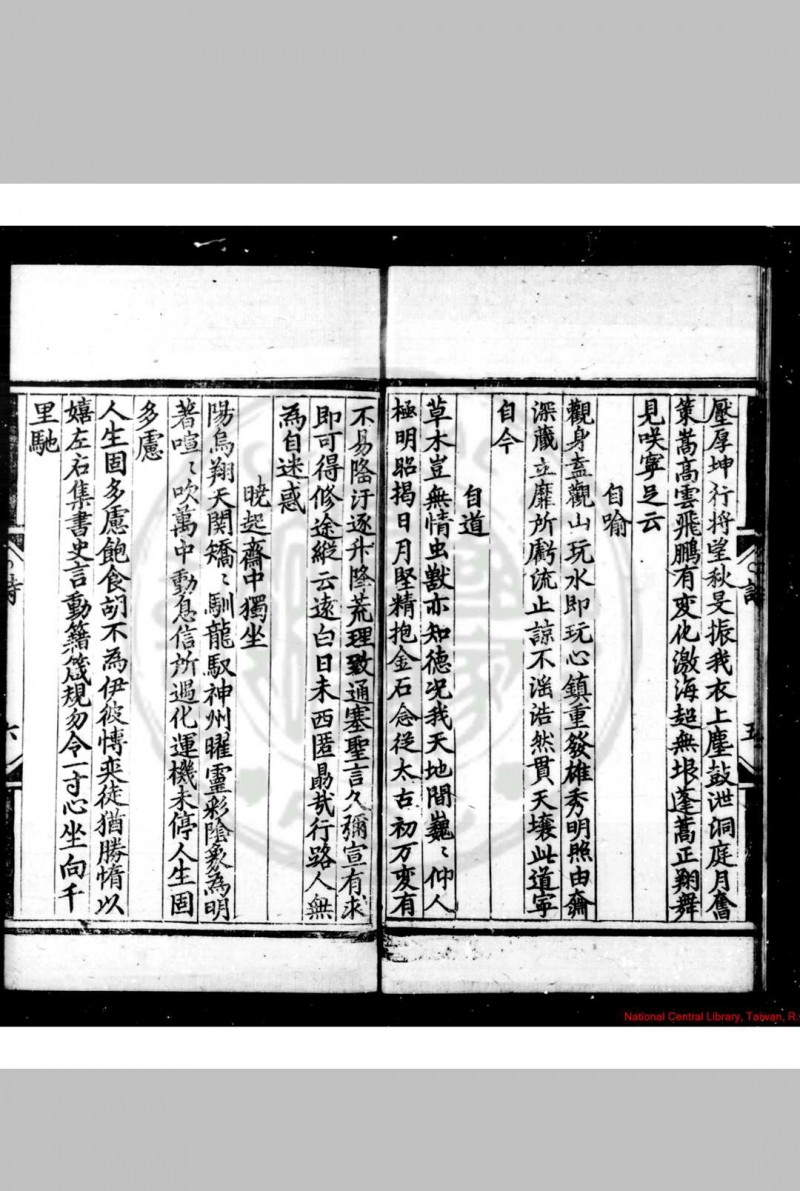 壓厚坤行將望秋旻振我衣上塵鼓泄洞庭月奮
策嵩高雲飛鵬有變化激海超無垠蓬蒿正翔舞
見咲寧足云
自喻
觀身盍觀山玩水即玩心鎮重發雄秀明照由淵
深藏立靡所虧流止諒不滛浩然貫天壤此道寧
自今
自道
草木豈無情虫獸亦知德况我天地間巍〻仲人
極明昭揭日月堅精抱金石念從太古初万变有
不易隆汙逐升降荒理致通塞聖言久彌宣有求
即可得修途縱云遠白日未西匿勗哉行路人無
為自迷惑
曉起齋中獨坐
陽烏翔天関矯〻馴龍馭神州曜靈彩陰象為明
著喧〻吹萬中動息信所過化運機未停人生固
多慮
人生固多慮飽食胡不為伊彼愽奕徒猶勝惰以
嬉左右集書史言動籍箴規勿令一寸心坐向千
里馳
詩 五
詩 六
National Central Library, Taiwan, R.